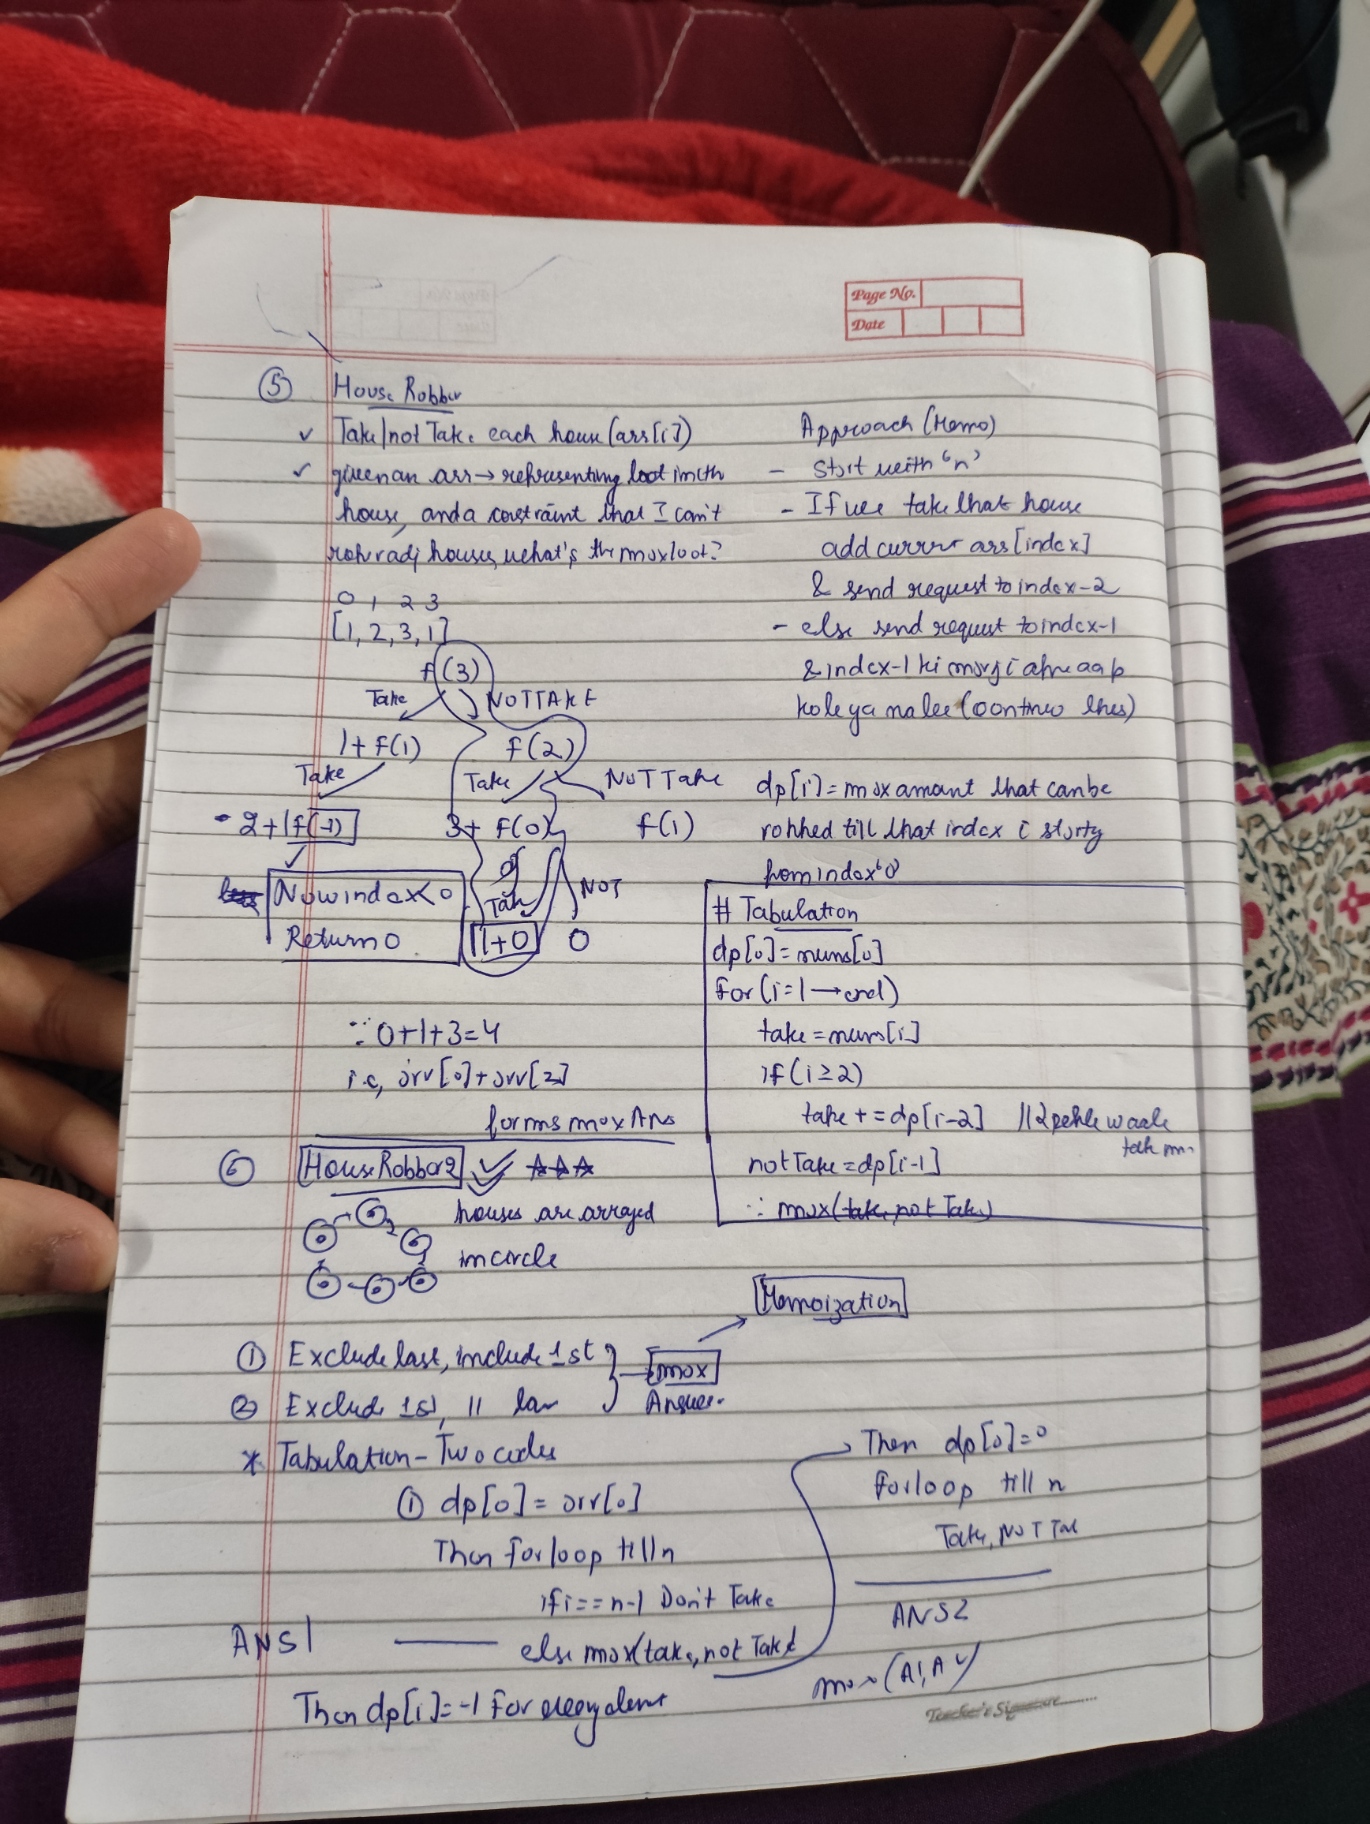 Page No.
Date
⑤ House Robber
✓ Take/not Take each house (arr[i])
✓ given an arr → representing loot in ith
house, and a constraint that I can't
rob adj houses, what's the max loot?
0 1 2 3
[1, 2, 3, 1]
f(3)
Take NOT TAKE
1 + f(1) f(2)
Take Take NOT Take
2 + f(-1) 3 + f(0) f(1)
Now index < 0
Return 0
Take NOT
1+0 0
∵ 0+1+3=4
i.e, arr[0] + arr[2]
forms max Ans
Approach (Memo)
- Start with 'n'
- If we take that house
add current arr[index]
& send request to index-2
- else send request to index-1
& index-1 ki marzi
le ya na lee (continue this)
dp[i] = max amount that can be
robbed till that index i starting
from index '0'
# Tabulation
dp[0] = nums[0]
for (i=1 → end)
take = nums[i]
if (i ≥ 2)
take += dp[i-2] // 2 pehle waale
notTake = dp[i-1]
∴ max(take, not Take)
⑥ House Robber 2 ✓
houses are arranged
in circle
① Exclude last, include 1st
② Exclude 1st, 11
max
Answer.
Memoization
* Tabulation - Two codes
① dp[0] = arr[0]
Then for loop till n
if i == n-1 Don't Take
else max(take, not Take)
ANS1
Then dp[i] = -1 for every
Then dp[0] = 0
for loop till n
Take, NOT
ANS2
max (A1, A2)
Teacher's Signature